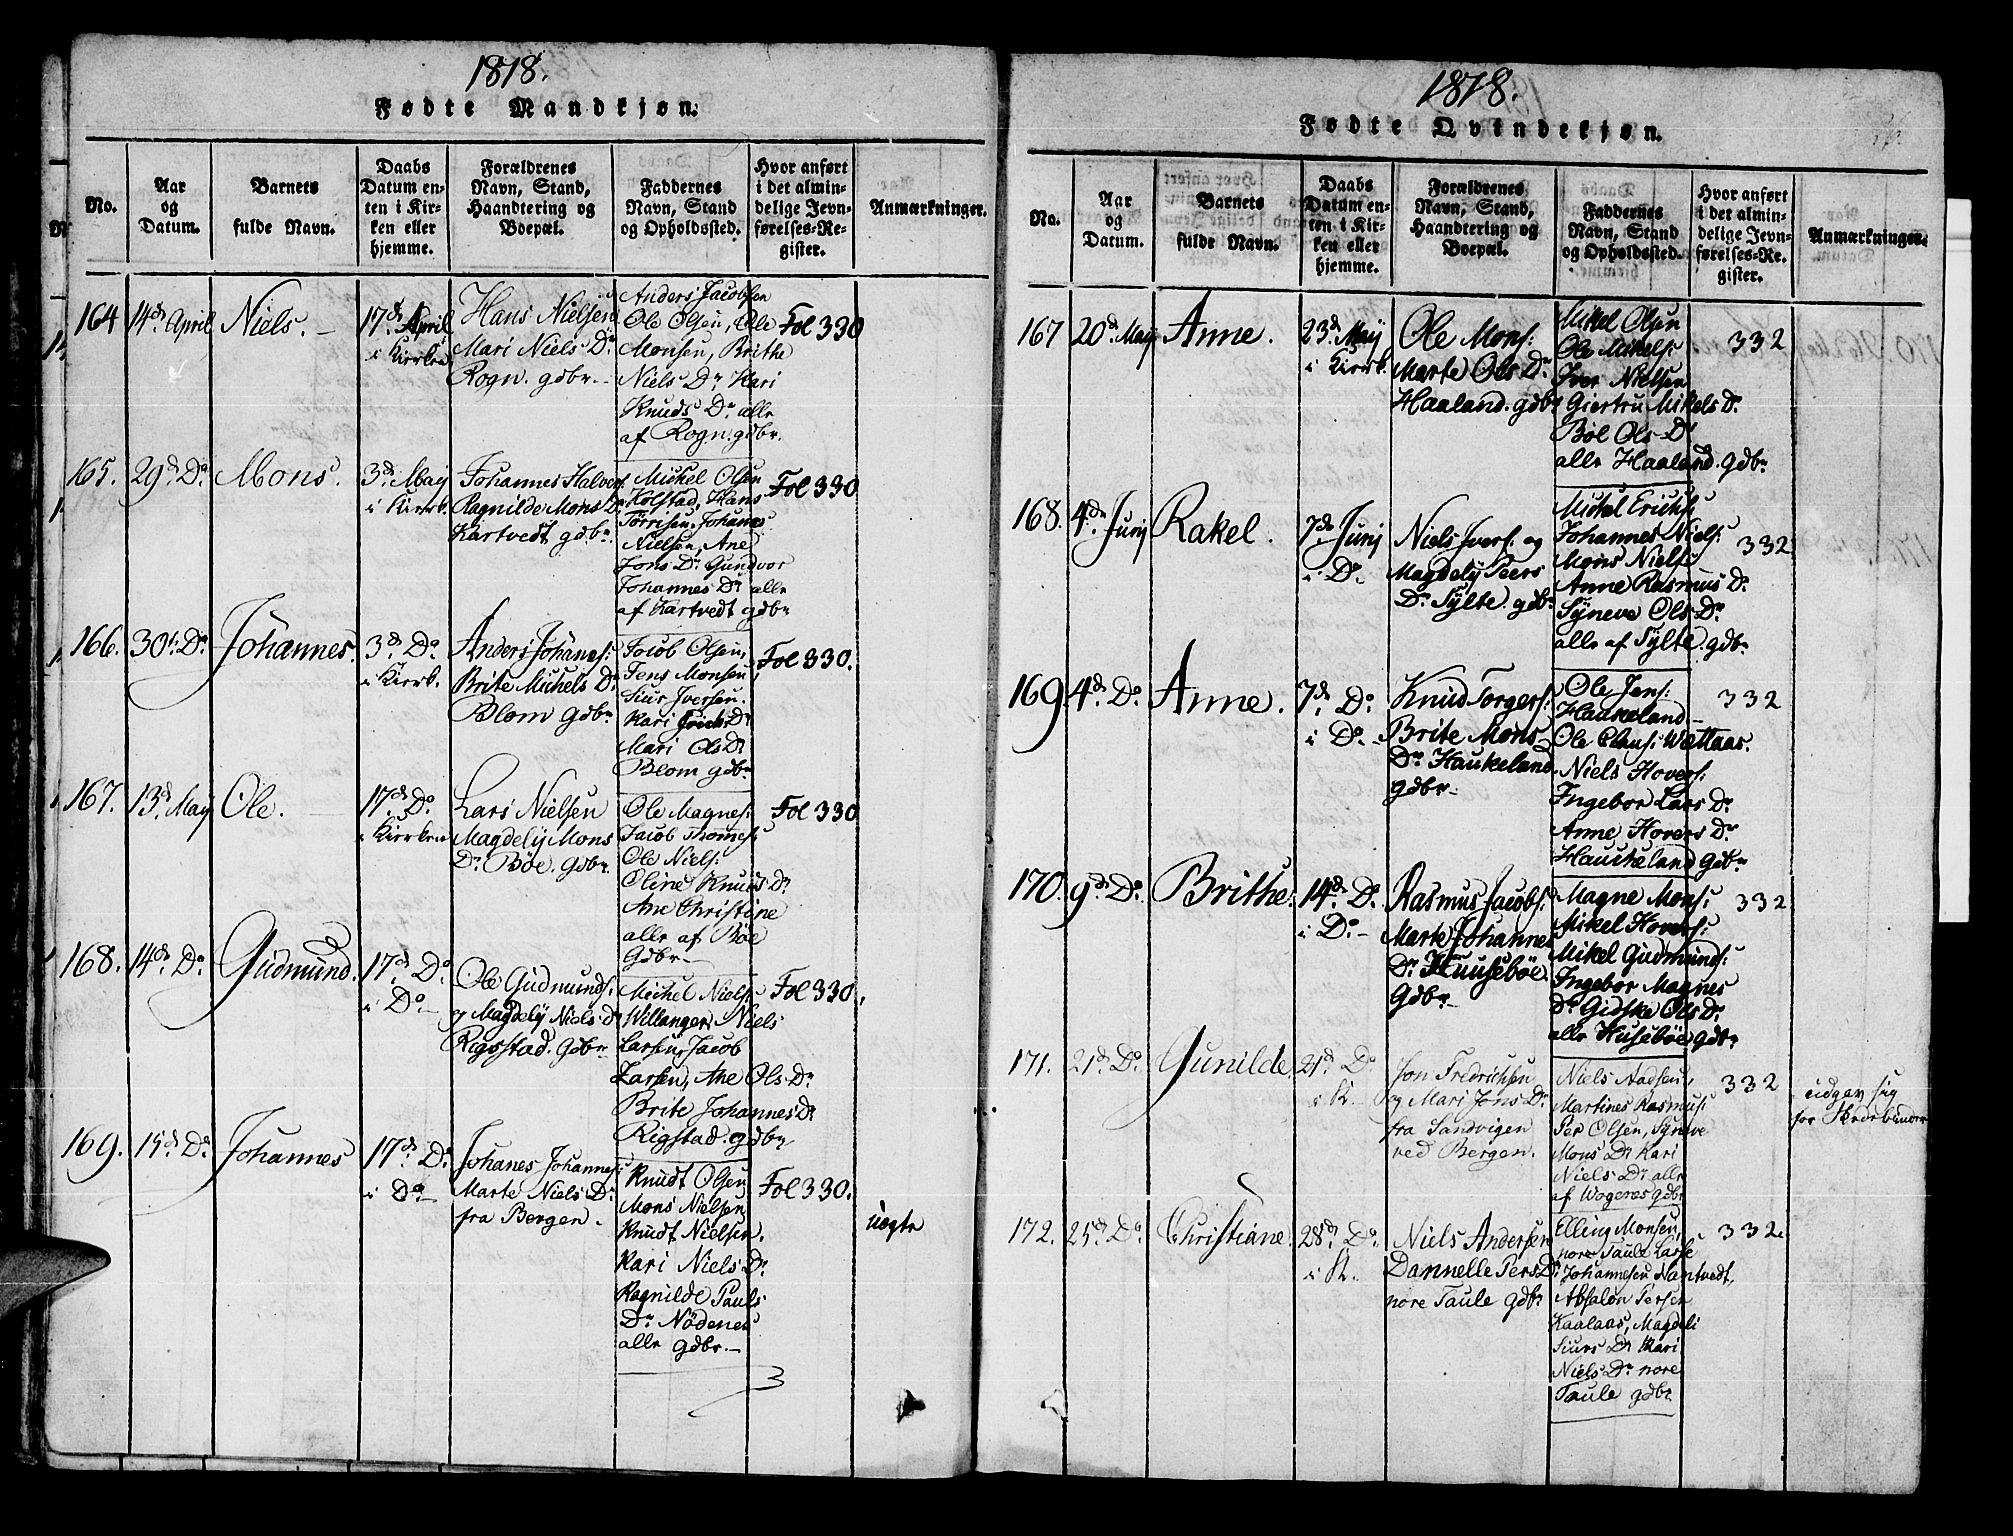 1818.
Fødte Mandkjøn.
No.
Aar
og
Datum.
Barnets
fulde Navn.
Daabs
Datum en-
ten i Kir-
ken eller
hjemme.
Forældrenes
Navn, Stand,
Haandtering og
Boepæl.
Faddernes
Navn, Stand
og Opholdssted.
Hvor anført
i det almin-
delige Jevn-
førelses-Re-
gister.
Anmærkninger.
164
14de April
Niels.
17de April
i Kirken
Hans Nielsen
Mari Niels Dr
Rogn. gdbr.
Anders Jacobsen
Ole Olsen, Ole
Monsen, Brithe
Niels Dr Kari
Knuds Dr alle
af Rogn. gdbr.
Fol 330
165.
29de Do
Mons.
3de May
i Kirk.
Johannes Halvors:
Ragnilde Mons Dr
Kartvedt gdbr.
Michel Olsen
Kolstad, Hans
Torrisen, Johanes
Nielsen, Ane
Jons Dr Gundvor
Johannes Dr alle
af Kartvedt gdbr
Fol 330
166.
30te Do
Johannes.
3de Do
i Kirk.
Anders Johanes:
Brite Michels Dr
Blom gdbr
Jocob Olsen,
Jens Monsen
Siur Iversen.
Kari Erichs Dr
Mari Ols Dr
Blom gdbr
Fol 330.
167.
13de May
Ole.
17de Do
i Kirken
Lars Nielsen
Magdely Mons
Dr Bøe. Gdbr.
Ole Magnes:
Jacob Thomes:
Ole Niels:
Oline Knuds Dr
Ane Christine
alle af Bøe
Gdbr
Fol 330
168.
14de Do
Gudmund.
17de Do
i Do
Ole Gudmunds:
og Magdely Niels Dr
Rigstad. Gdbr
Michel Niels:
Willanger, Niels
Larsen, Jacob
Larsen, Ane Ols Dr
Brite Johannes Dr
Rigstad. gdbr
Fol 330.
169.
15de Do
Johannes
17de Do
i Do
Johanes Johannes:
Marte Niels Dr
fra Bergen.
Knudt Olsen
Mons Nielsen
Knudt Nielsen.
Kari Niels Dr
Ragnilde Pauls
Dr Nödenes
alle gdbr.
Fol 330.
uægte
1818.
Fødte Qvindekjøn.
No.
Aar
og
Datum.
Barnets
fulde Navn.
Daabs
Datum en-
ten i Kir-
ken eller
hjemme.
Forældrenes
Navn, Stand,
Haandtering og
Boepæl.
Faddernes
Navn, Stand
og Opholdssted.
Hvor anført
i det almin-
delige Jevn-
førelses-Re-
gister.
Anmærkninger.
167
20de May
Anne.
23de May
i Kirk.
Ole Mons:
Marte Ols Dr
Haaland. gdbr
Mikel Olsen
Ole Mikels:
Iver Nielsen
Giertru Mikels Dr
Böl Ols Dr
alle Haaland. gdbr
332
168.
4de Junj
Rakel.
7de Junj
i Do
Niels Ivers: og
Magdely Peers
Dr Sylte. gdbr
Michel Erichs:
Johannes Niels:
Mons Niels:
Anne Rasmus Dr
Syneve Ols Dr
alle af Sylte. gdbr
332
169.
4de Do
Anne.
7de Do
i Do
Knud Torgers:
Brite Mons
Dr Haukeland
gdbr.
Ole Jens:
Haukeland
Ole Claus: Wættaas.
Niels Hovers:
Ingebor Lars Dr
Anne Hovers Dr
Hauckeland gdbr
332
170.
9de Do
Brithe.
14de Do
i Do
Rasmus Jacobs:
Marte Johannes
Dr Huusebøe.
Gdbr
Magne Mons:
Mikel Hovers:
Mikel Gudmunds:
Ingebor Magnes
Dr Gidske Ols Dr
alle Husebøe gdbr
332
171.
21de Do
Gunilde
21de Do
i K.
Jon Fredrichsen
og Mari Jons Dr
fra Sandvigen
ved Bergen.
Niels Aadsen,
Martines Rasmus:
Per Olsen, Syneve
Mons Dr Kari
Niels Dr alle
af Wogenes gdbr
332
udgav sig
for
172.
25de Do
Christiane.
28de Do
i K.
Niels Andersen
Dannelle Pers Dr
nore Taule gdbr
Elling Monsen,
nore Taule Lasse
Johannesen Nantvedt,
Absalon Persen
Kaalaas, Magdeli
Siurs Dr Kari
Niels Dr nore
Taule gdbr
332.